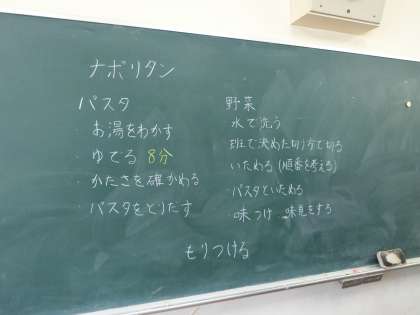 ナポリタン
パスタ
・お湯をわかす
・ゆでる 8分
・かたさを確かめる
・パスタをとりだす
野菜
水で洗う
班で決めた切り方で切る
いためる(順番を考える)
・パスタといためる
・味つけ 味見をする
もりつける